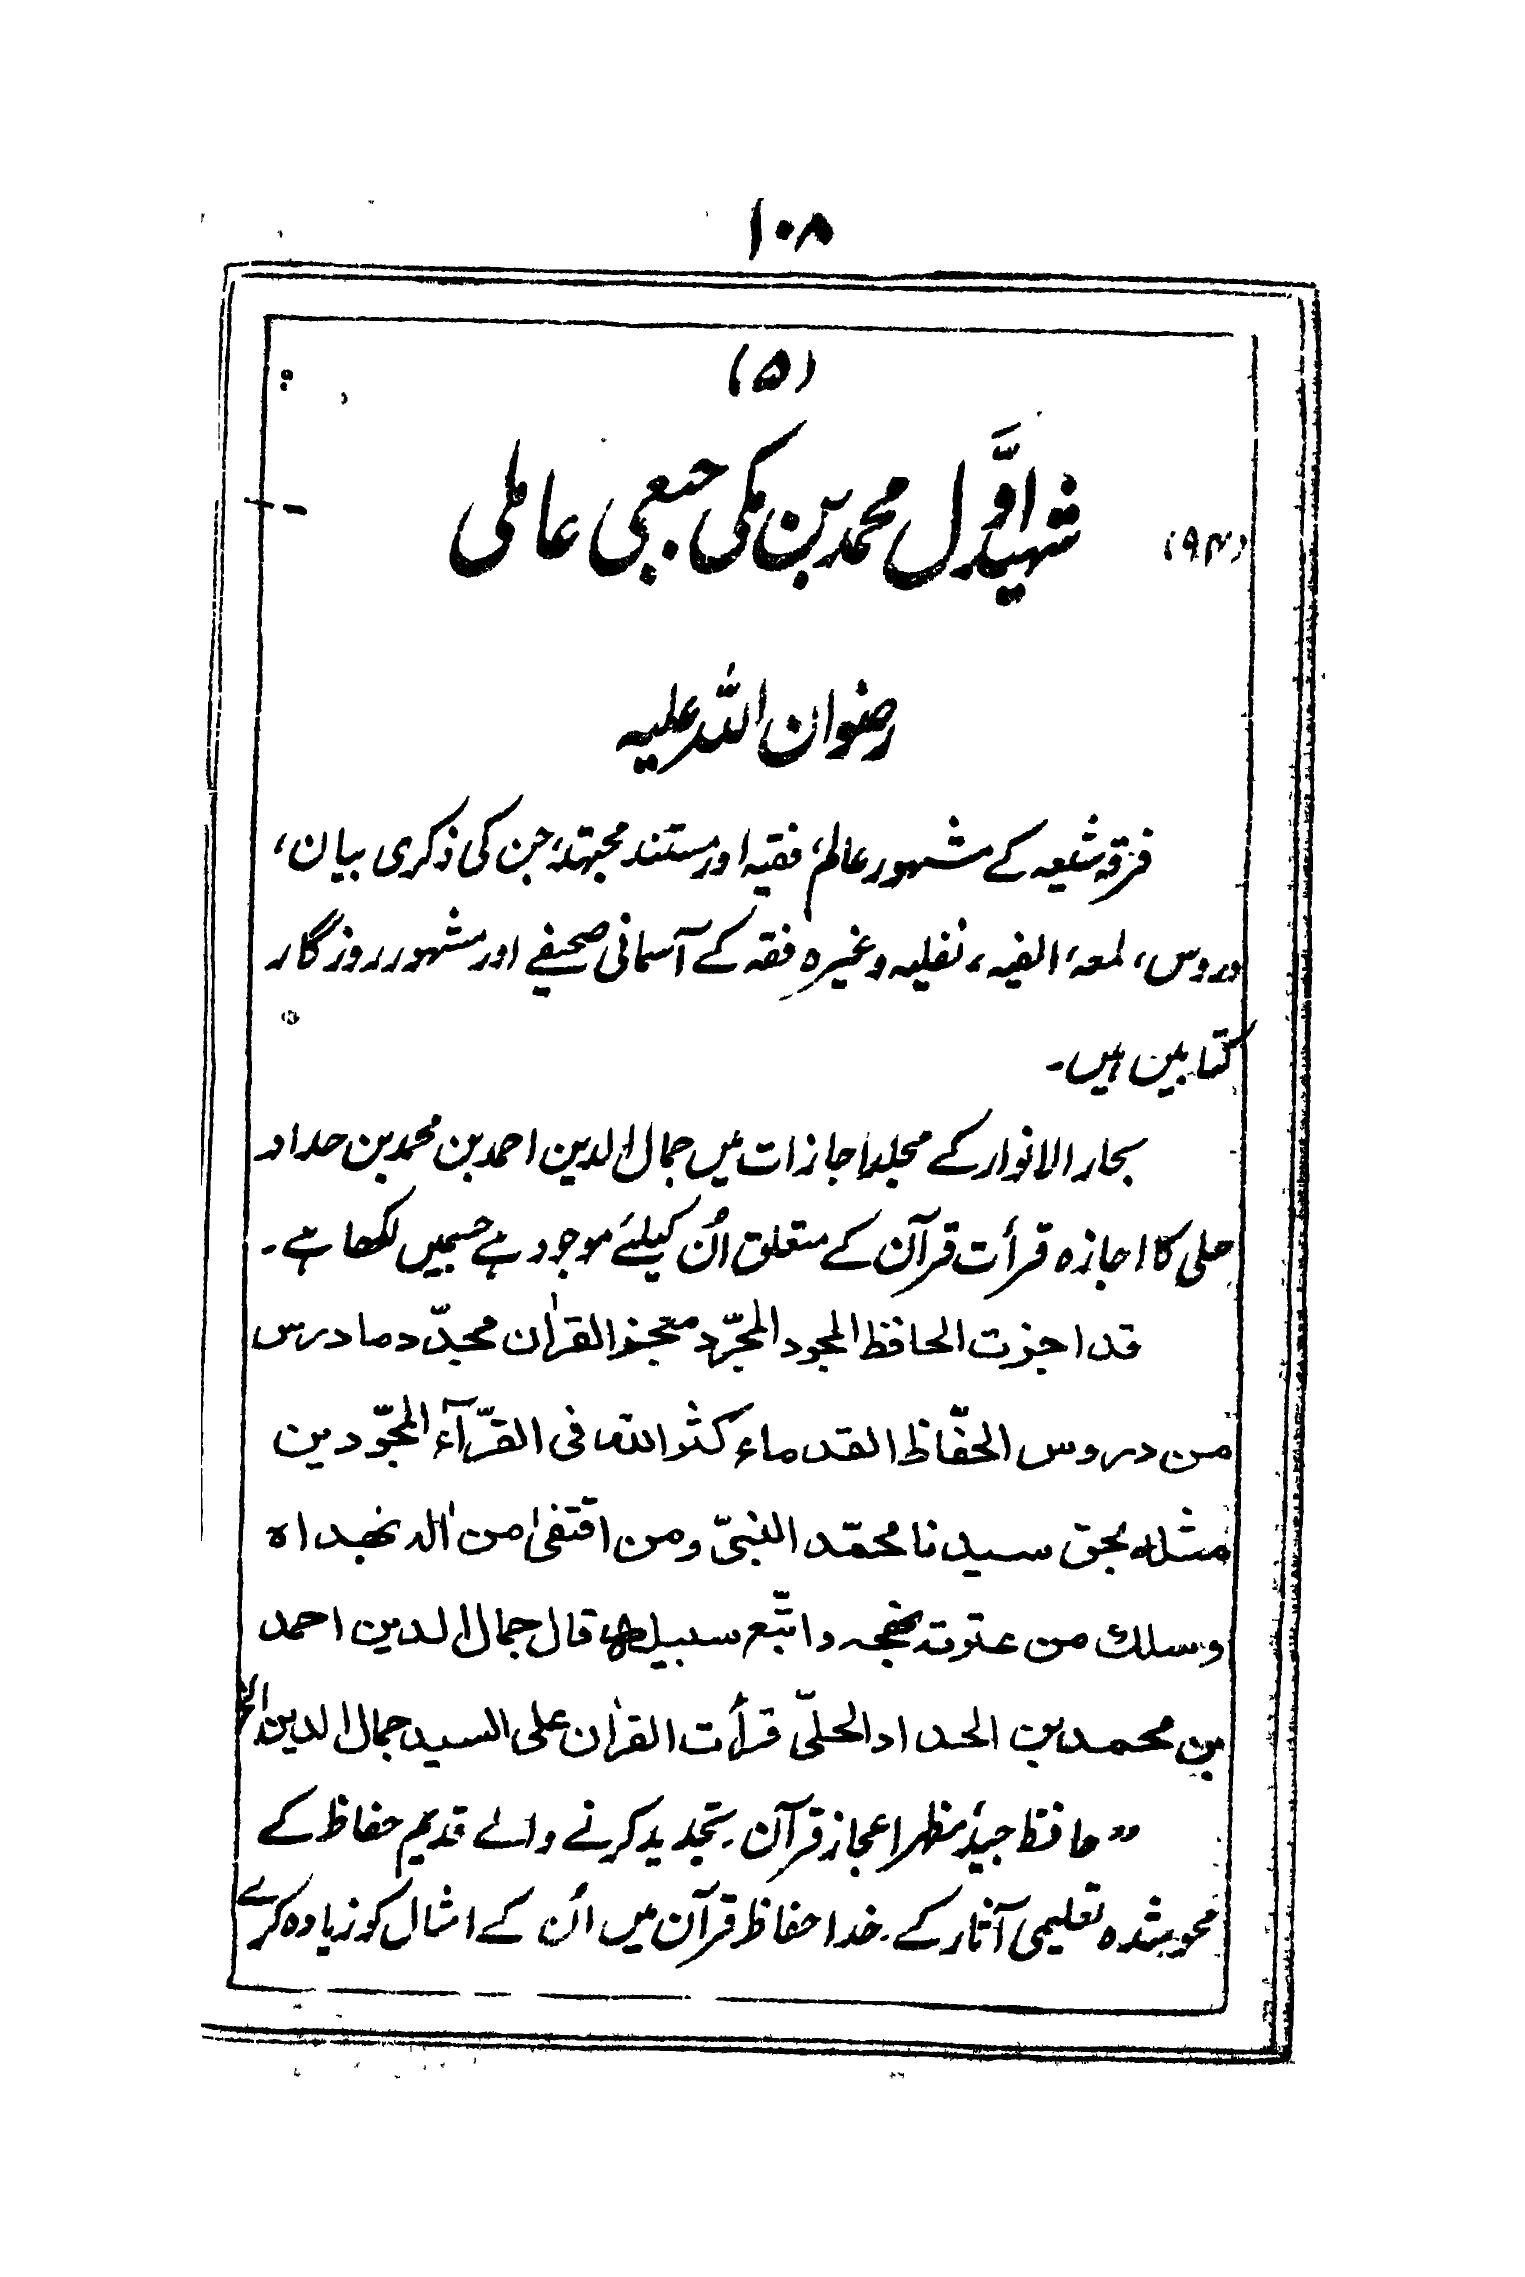 ۱۰۸
(۵)
(۹۴) شہید اوّل محمد بن مکی جبعی عاملی
رضوان اللہ علیہ
فرقہ شیعہ کے مشہور عالم، فقیہ اور مستند مجتہد، جن کی ذکریٰ بیان،
دروس، لمعہ، الفیہ، نفلیہ وغیرہ فقہ کے آسمانی صحیفے اور مشہور روزگار
کتابیں ہیں۔
بحار الانوار کے مجلد اجازات میں جمال الدین احمد بن محمد بن حداد
حلی کا اجازہ قرأت قرآن کے متعلق اُن کیلئے موجود ہے جسمیں لکھا ہے۔
قد اجزت الحافظ المجود المجرّد معجز القرآن مجدّد ما درس
من دروس الحفّاظ القدماء کثر اللہ فی القرّآء المجّودین
مثلہ بحق سیدنا محمّد النبیّ ومن اقتفیٰ من اٰلہ بھداہ
وسلك من عترتہ نھجہ واتّبع سبیلہ قال جمال الدین احمد
بن محمد بن الحداد الحلیّ قرأت القراٰن علی السید جمال الدین
”حافظ جید، مظہر اعجاز قرآن۔ تجدید کرنے والے قدیم حفاظ کے
محو شدہ تعلیمی آثار کے۔ خدا حفاظ قرآن میں اُن کے امثال کو زیادہ کرے